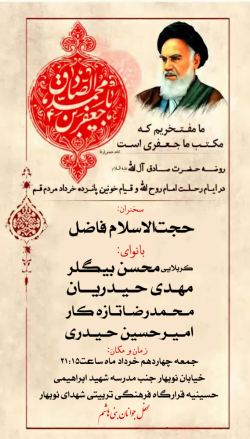 یا جعفر بن محمد الصادق
ما مفتخریم که
مکتب ما جعفری است
روضه حضرت صادق آل الله
در ایام رحلت امام روح الله و قیام خونین پانزده خرداد مردم قم
سخنران:
حجتالاسلام فاضل
بانوای:
کربلایی محسن بیگلر
مهدی حیدریان
محمدرضا تازه کار
امیرحسین حیدری
زمان و مکان:
جمعه چهاردهم خرداد ماه ساعت ۲۱:۱۵
خیابان نوبهار جنب مدرسه شهید ابراهیمی
حسینیه قرارگاه فرهنگی تربیتی شهدای نوبهار
محفل جوانان بنی هاشم